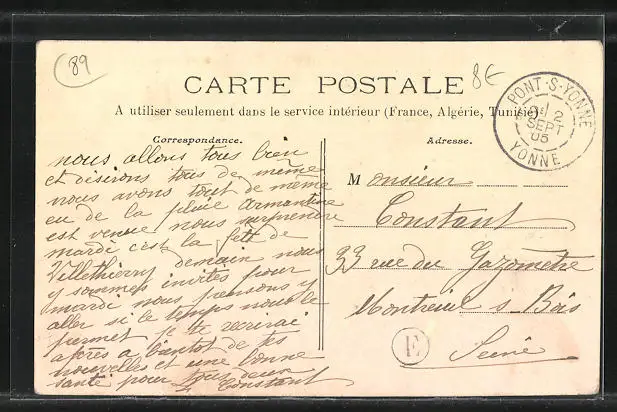 89
8€
CARTE POSTALE
A utiliser seulement dans le service intérieur (France, Algérie, Tunisie)
PONT-S-YONNE
2
SEPT
05
YONNE
Correspondance.
nous allons tous bien
et désirons tous de même
nous avons tout de même
eu de la pluie armantine
est venue nous surprendre
mardi c'est la fett de
Villethierry demain nous
y sommes invités pour
mardi nous pensons y
aller si le temps nous le
permet je te recrirai
après a bientot de tes
nouvelles et une bonne
santé pour tous deux
Constant
Adresse.
Monsieur
Constant
33 rue du Gazomètre
Montreuil s Bois
Seine
E